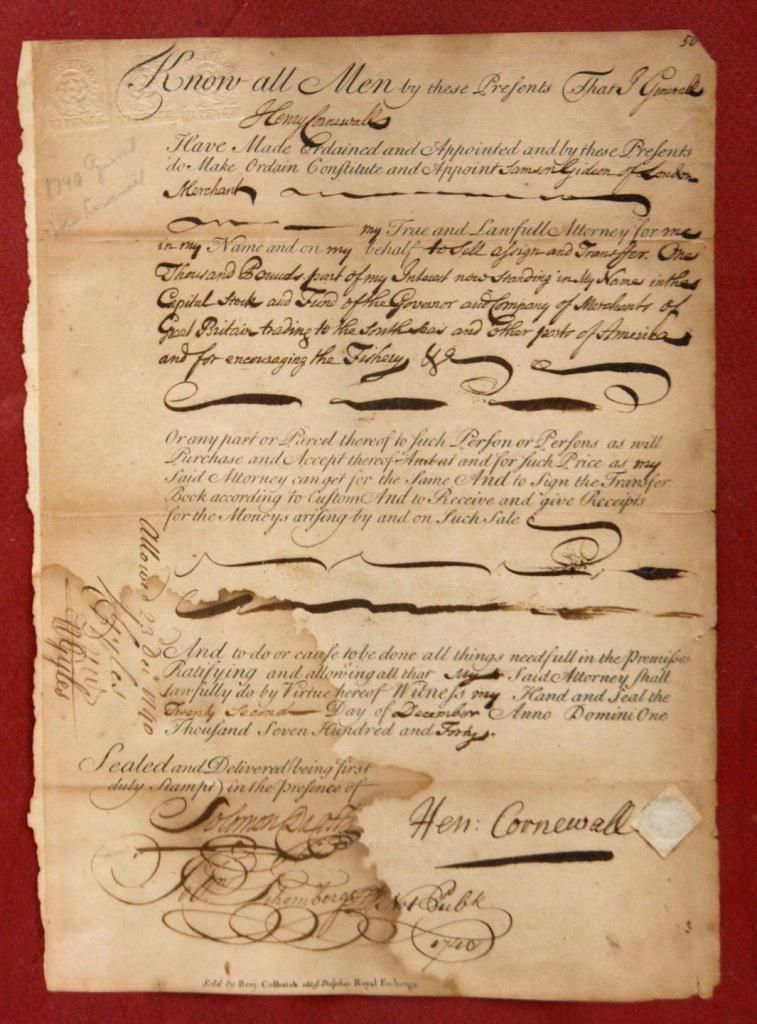 50
Know all Men by these Presents That I Generall
Henry Cornewall
Have Made Ordained and Appointed and by these Presents
do Make Ordain Constitute and Appoint Samson Gideon of London
Merchant
my True and Lawfull Attorney for me
in my Name and on my behalf to Sell assign and Transffer One
Thousand Pounds part of my Interest now standing in My Name in the
Capital Stock and Fund of the Governor and Company of Merchants of
Great Britain trading to the South Seas and other parts of America
and for encouraging the Fishery &c
Or any part or Parcel thereof to such Person or Persons as will
Purchase and Accept thereof And at and for such Price as my
Said Attorney can get for the Same And to Sign the Transfer
Book according to Custom And to Receive and give Receipts
for the Moneys arising by and on Such Sale
And to do or cause to be done all things needfull in the Premisses
Ratifying and allowing all that My Said Attorney shall
lawfully do by Virtue hereof Witness my Hand and Seal the
Twenty Second Day of December Anno Domini One
Thousand Seven Hundred and Forty.
Sealed and Delivered (being first
duly Stampt) in the Presence of
Solomon
Hen: Cornewall
Schomberg Not Pubk
1740
3
Sold by Benj. Colbatch Dolphin Royal Exchange
Allowd 23 Dec 1740
Gyles